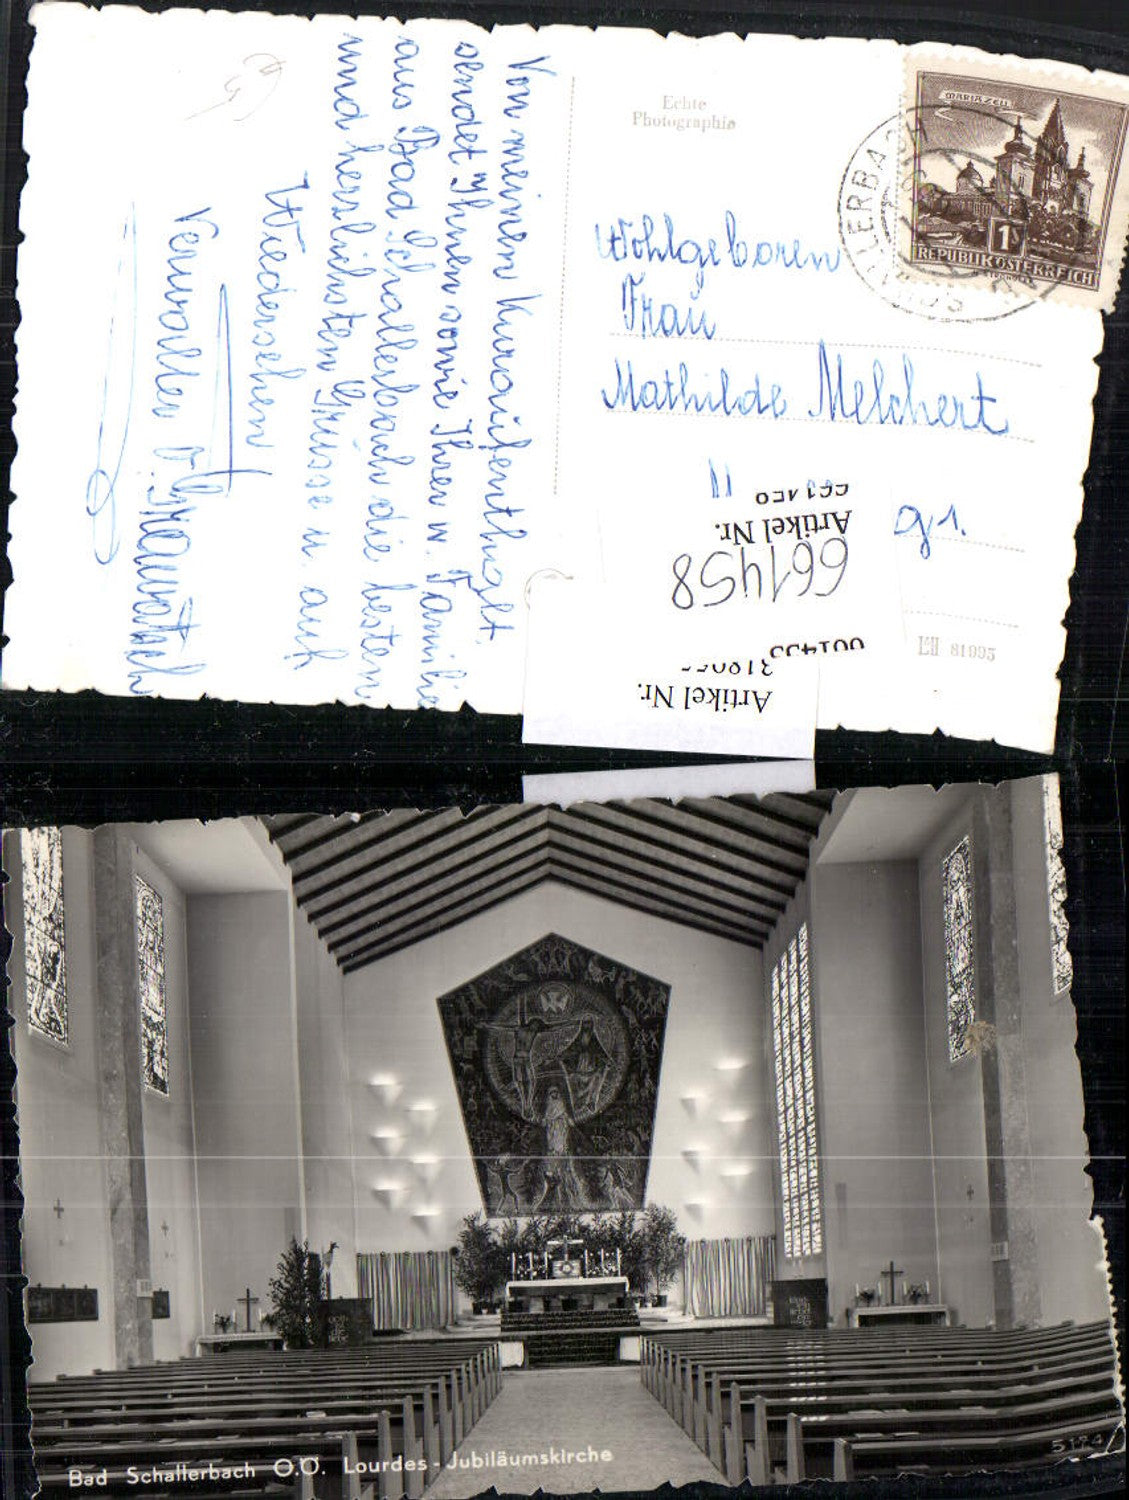 Von meinem Kuraufenthalt
sendet Ihnen sowie Ihren w. Familie
aus Bad Schallerbach die besten
und herzlichsten Grüsse u. auf
Wiedersehen
Verwalter
Echte
Photographie
MARIAZELL
1S
REPUBLIK ÖSTERREICH
SCHALLERBACH
Wohlgeboren
Frau
Mathilde Melchert
Artikel Nr.
661458
Artikel Nr.
81995
Bad Schallerbach O.Ö. Lourdes-Jubiläumskirche